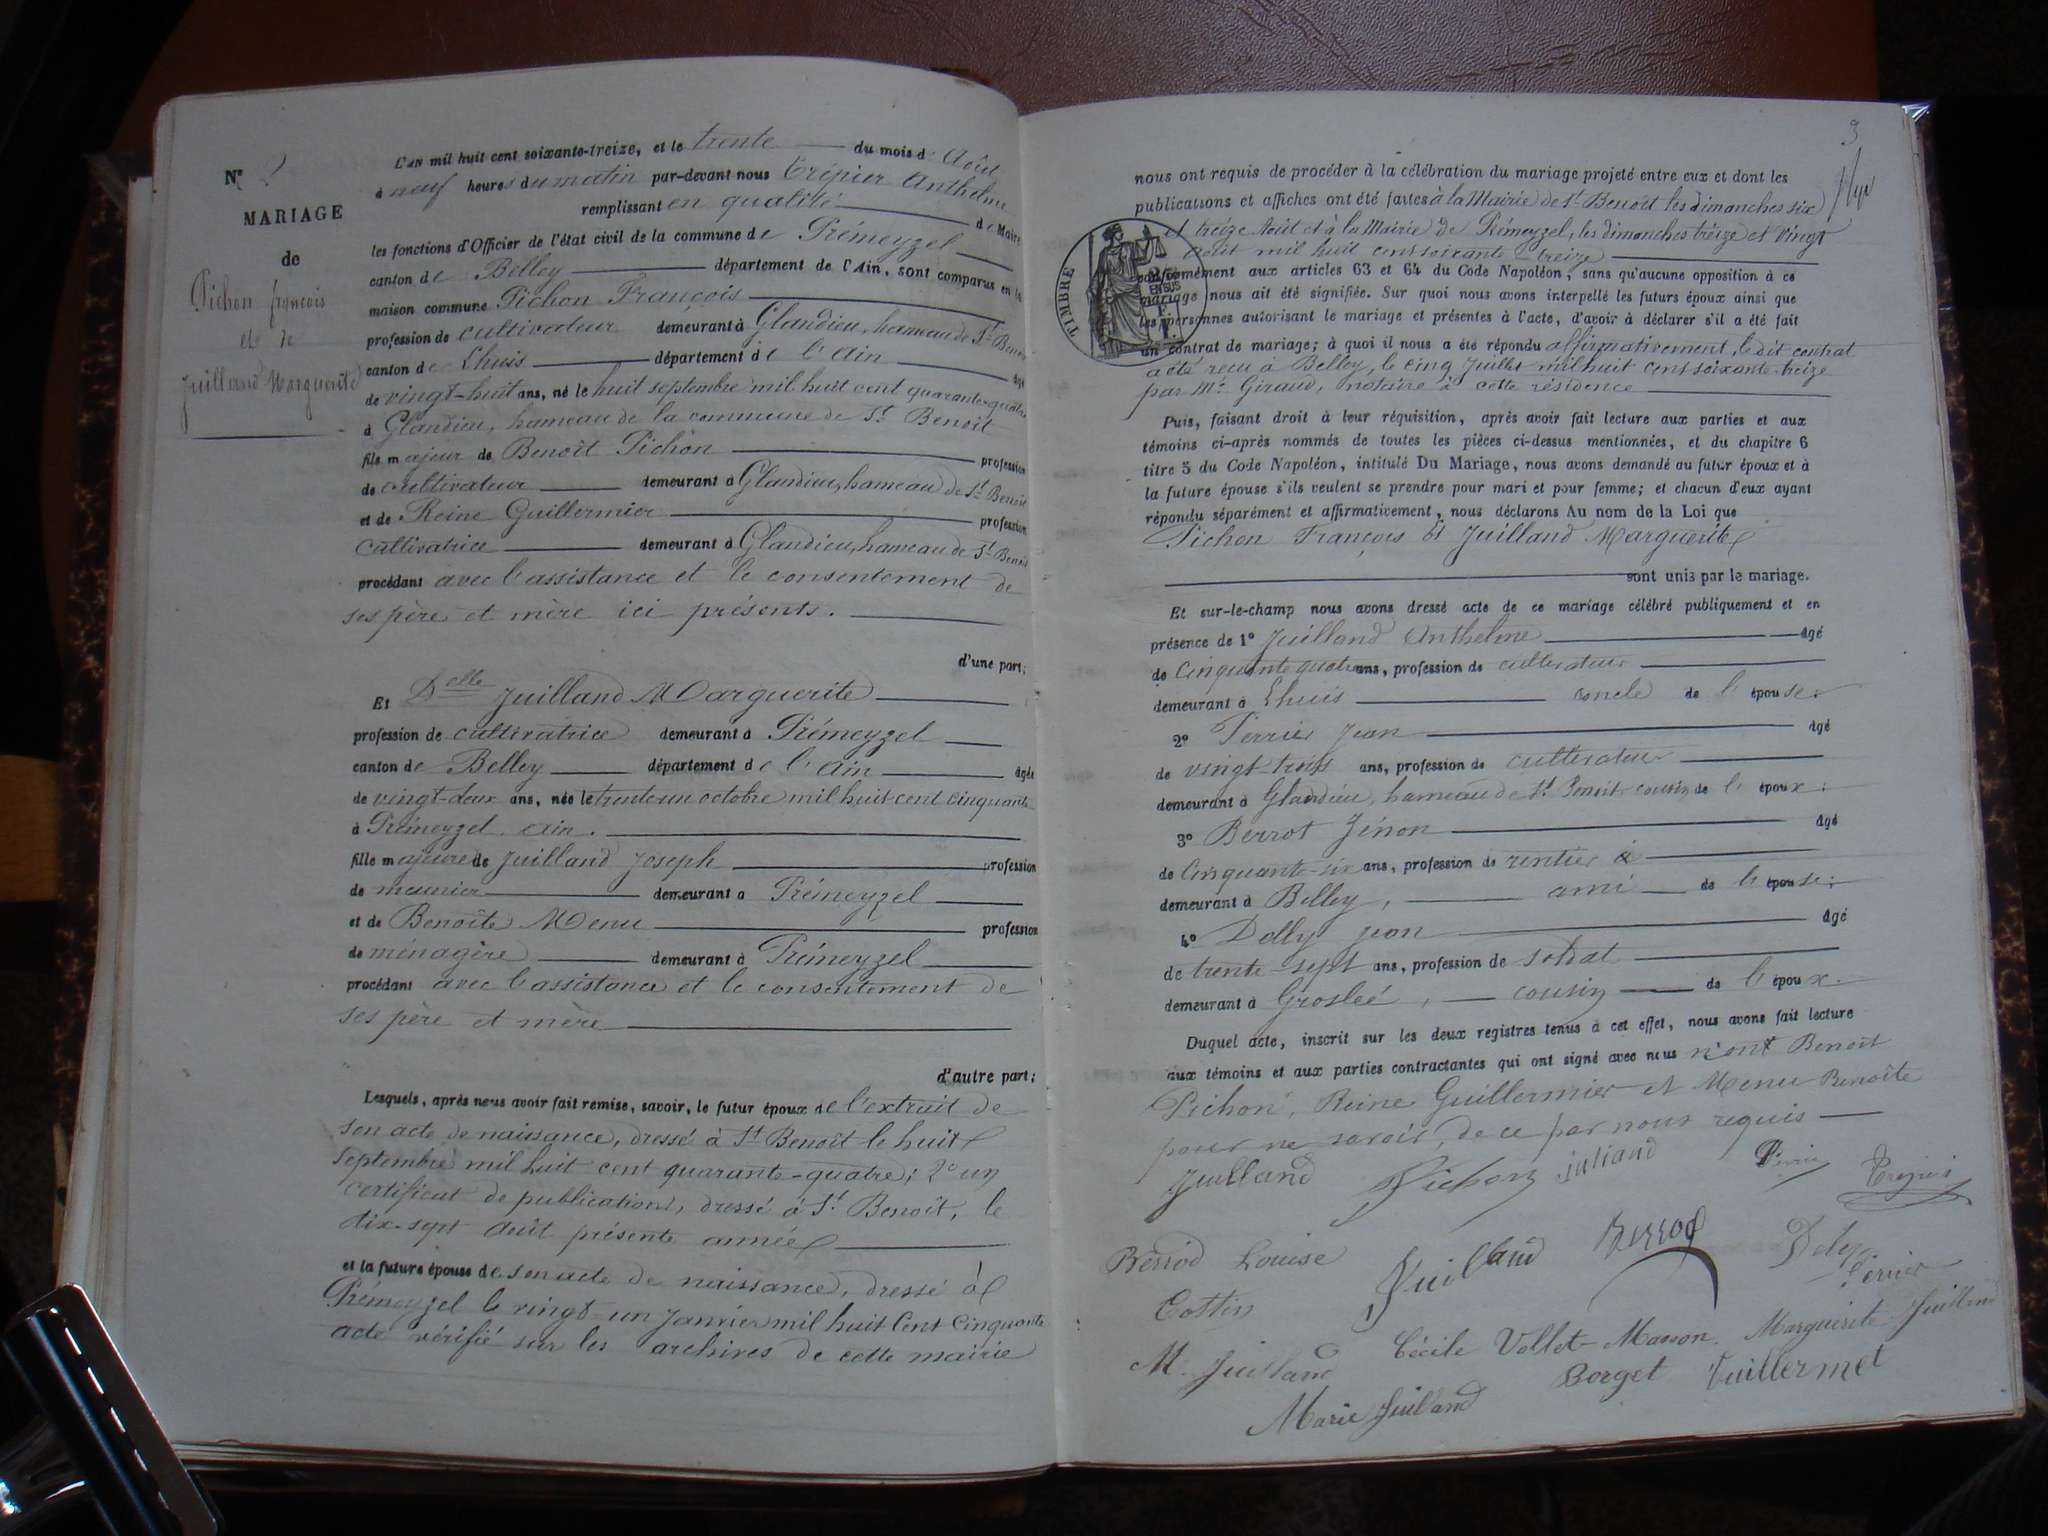 N° 2
MARIAGE
de
Pichon françois
et de
Juilland Marguerite
L'AN mil huit cent soixante-treize, et le trente du mois d'Août
à neuf heures du matin par-devant nous Trépier Anthelme
remplissant en qualité de Maire
les fonctions d'Officier de l'état civil de la commune de Prémeyzel
canton de Belley département de l'Ain, sont comparus en la
maison commune Pichon François
profession de cultivateur demeurant à Glandieu, hameau de St Benoit
canton de Lhuis département de l'Ain âgé
de vingt-huit ans, né le huit septembre mil huit cent quarante-quatre
à Glandieu, hameau de la commune de St Benoit
fils majeur de Benoît Pichon profession
de cultivateur demeurant à Glandieu, hameau de St Benoit
et de Reine Guillermier profession
cultivatrice demeurant à Glandieu, hameau de St Benoit
procédant avec l'assistance et le consentement de
ses père et mère ici présents.
d'une part;
Et Delle Juilland Marguerite
profession de cultivatrice demeurant à Prémeyzel
canton de Belley département de l'Ain âgée
de vingt-deux ans, née le trente un octobre mil huit cent cinquante
à Prémeyzel, Ain.
fille majeure de Juilland Joseph profession
de meunier demeurant à Prémeyzel
et de Benoîte Menu profession
de ménagère demeurant à Prémeyzel
procédant avec l'assistance et le consentement de
ses père et mère
d'autre part;
Lesquels, après nous avoir fait remise, savoir, le futur époux de l'extrait de
son acte de naissance, dressé à St Benoît le huit
septembre mil huit cent quarante-quatre; 2° un
certificat de publications, dressé à St Benoît, le
dix-sept août présente année
et la future épouse de son acte de naissance, dressé à
Prémeyzel le vingt-un Janvier mil huit Cent Cinquante
acte vérifié sur les archives de cette mairie
3
nous ont requis de procéder à la célébration du mariage projeté entre eux et dont les
publications et affiches ont été faites à la Mairie de St Benoit les dimanches six
et treize Août et à la Mairie de Prémeyzel, les dimanches treize et vingt
août mil huit cent soixante treize
TIMBRE
EN SUS
conformément aux articles 63 et 64 du Code Napoléon, sans qu'aucune opposition à ce
mariage nous ait été signifiée. Sur quoi nous avons interpellé les futurs époux ainsi que
les personnes autorisant le mariage et présentes à l'acte, d'avoir à déclarer s'il a été fait
un contrat de mariage; à quoi il nous a été répondu affirmativement, le dit contrat
a été reçu à Belley, le cinq Juillet mil huit cent soixante-treize
par Me Giraud, notaire à cette résidence
Puis, faisant droit à leur réquisition, après avoir fait lecture aux parties et aux
témoins ci-après nommés de toutes les pièces ci-dessus mentionnées, et du chapitre 6
titre 5 du Code Napoléon, intitulé Du Mariage, nous avons demandé au futur époux et à
la future épouse s'ils veulent se prendre pour mari et pour femme; et chacun d'eux ayant
répondu séparément et affirmativement, nous déclarons Au nom de la Loi que
Pichon François Et Juilland Marguerite
sont unis par le mariage.
Et sur-le-champ nous avons dressé acte de ce mariage célébré publiquement et en
présence de 1° Juilland Anthelme âgé
de Cinquante quatre ans, profession de cultivateur
demeurant à Lhuis oncle de l'épouse.
2° Perrier Jean âgé
de vingt trois ans, profession de cultivateur
demeurant à Glandieu, hameau de St Benoit cousin de l'époux.
3° Berrot Jénon âgé
de Cinquante-six ans, profession de rentier à
demeurant à Belley, ami de l'épouse.
4° Delly jean âgé
de trente-sept ans, profession de soldat
demeurant à Groslée, cousin de l'époux.
Duquel acte, inscrit sur les deux registres tenus à cet effet, nous avons fait lecture
aux témoins et aux parties contractantes qui ont signé avec nous n'ont Benoit
Pichon, Reine Guillermier et Menu Benoîte
pour ne savoir, de ce par nous requis
Juilland Pichon juliand
Berrod Louise Juilland Berrod Dely
Cottin Perrier
M. Juilland Cécile Vollet-Masson. Marguerite Juilland
Marie Juiland Borget Vuillermet